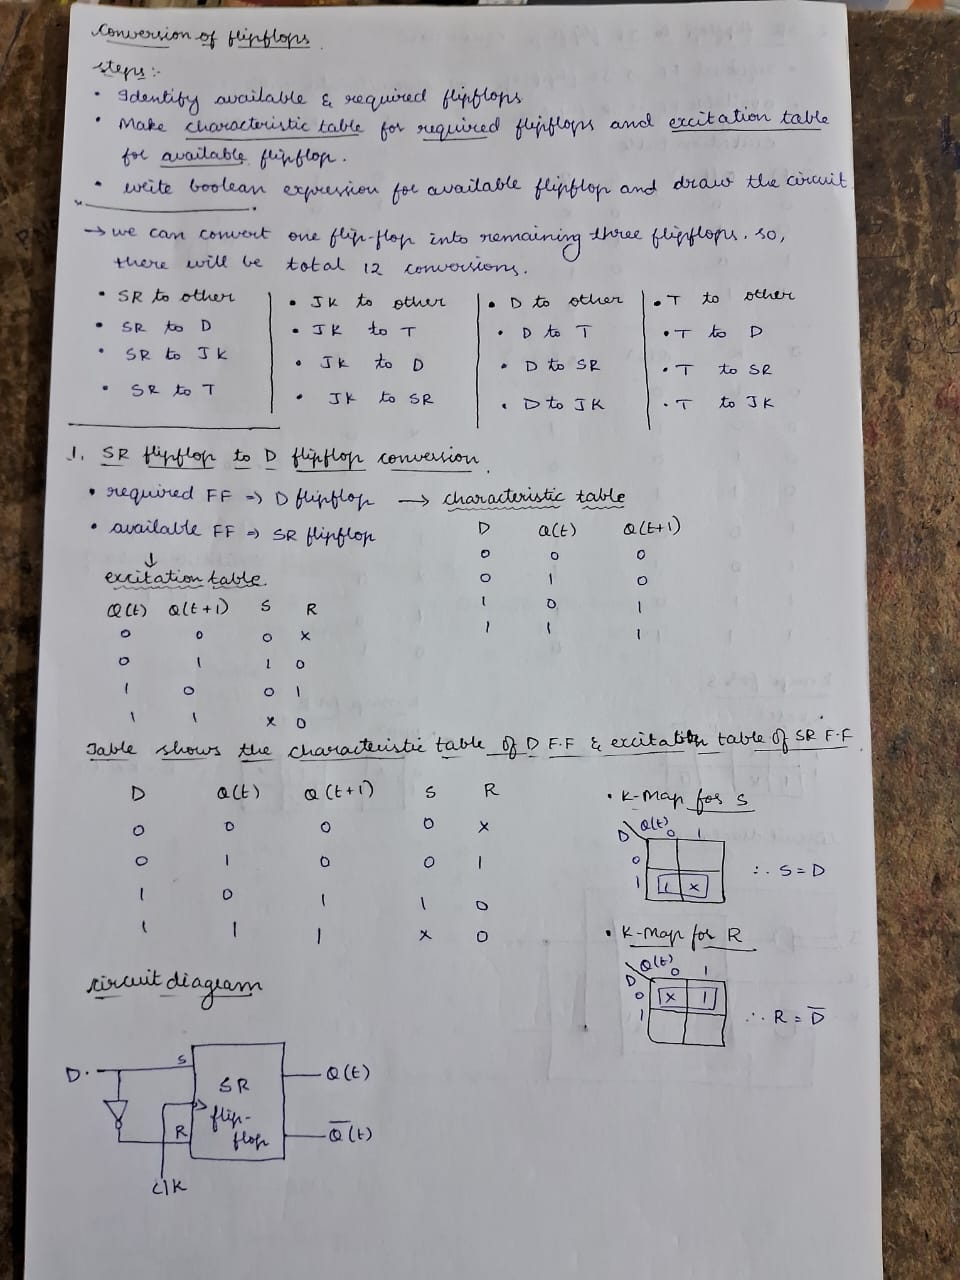 Conversion of flipflops
steps:-
• Identify available & required flipflops
• Make characteristic table for required flipflops and excitation table
for available flipflop.
• write boolean expression for available flipflop and draw the circuit
→ we can convert one flip-flop into remaining three flipflops. so,
there will be total 12 conversions.
• SR to other
• SR to D
• SR to JK
• SR to T
• JK to other
• JK to T
• JK to D
• JK to SR
• D to other
• D to T
• D to SR
• D to JK
• T to other
• T to D
• T to SR
• T to JK
1. SR flipflop to D flipflop conversion.
• required FF => D flipflop → characteristic table
• available FF => SR flipflop
↓
excitation table.
Q(t) Q(t+1) S R
0 0 0 x
0 1 1 0
1 0 0 1
1 1 x 0
D Q(t) Q(t+1)
0 0 0
0 1 0
1 0 1
1 1 1
Table shows the characteristic table of D F.F & excitation table of SR F.F
D Q(t) Q(t+1) S R
0 0 0 0 x
0 1 0 0 1
1 0 1 1 0
1 1 1 x 0
• K-Map for S
Q(t)
D 0 1
0
1 1 x
∴ S = D
• K-Map for R
Q(t)
D 0 1
0 x 1
1
∴ R = D̅
circuit diagram
D S
SR
flip-
flop
R
clk
Q(t)
Q̅(t)